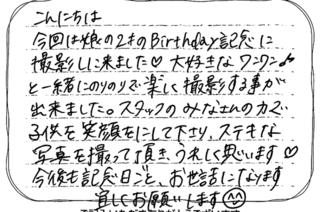 こんにちは
今回は娘の2才のBirthday記念に
撮影しに来ました♡大好きなワンワン♪
と一緒にのりのりで楽しく撮影する事が
出来ました。スタッフのみなさんの力で
子供を笑顔をにして下さり、ステキな
写真を撮って頂き、うれしく思います♡
今後も記念日ごと、お世話になります
宜しくお願いします